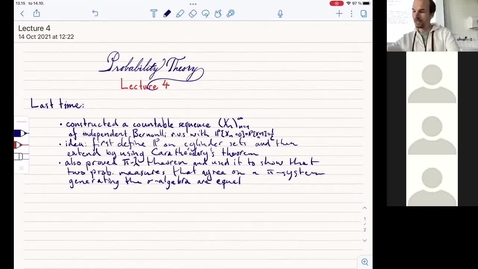 13.15 to 14.10.
87 %
Lecture 4
14 Oct 2021 at 12:22
Probability Theory
Lecture 4
Last time:
• constructed a countable sequence (Xn)∞n=1
of independent Bernoulli r.v.s with P[Xn=0]=P[Xn=1]=½
• idea: first define P on cylinder sets and then
extend by using Carathéodory's theorem
• also proved π-λ theorem and used it to show that
two prob. measures that agree on a π-system
generating the σ-algebra are equal